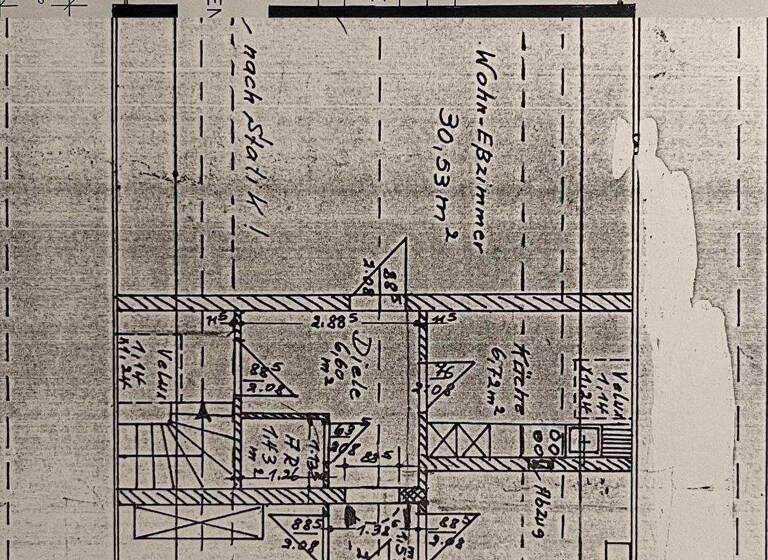 Wohn-Eßzimmer
30,53 m²
nach Statik!
88⁵
2.08
11⁵
2.88⁵
11⁵
Diele
6,60
m²
Küche
6,72 m²
Velux
1.14
Velux
1.14
88⁵
2.08
76
2.08
63⁵
2.08
88⁵
AR
1,43
m²
1.26
Abzug
88⁵
2.08
88⁵
2.08